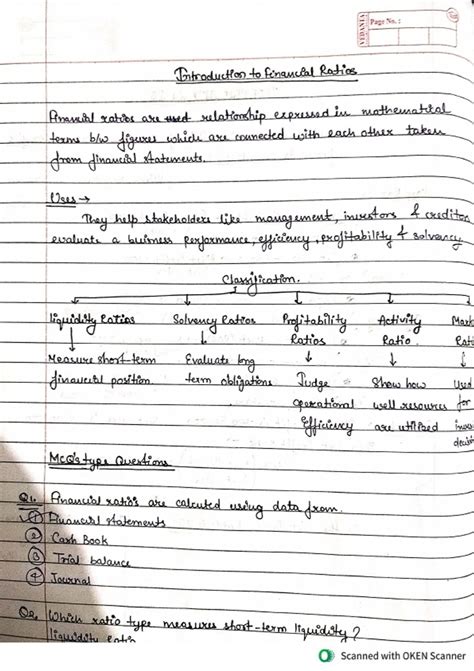 VEDANTA
Page No. :
Introduction to Financial Ratios
Financial ratios are used relationship expressed in mathematical
terms b/w figures which are connected with each other taken
from financial statements.
Uses →
They help stakeholders like management, investors & creditors
evaluate a business performance, efficiency, profitability & solvency
Classification.
liquidity Ratios Solvency Ratios Profitability Activity Mark
Ratios Ratio. Rati
Measure short-term Evaluate long
financial position. term obligations Judge Show how Used
operational well resources for
Efficiency are utilised inves
decisin
MCQ's type Questions
Q1. Financial ratios are calculted using data from.
1 Financial statements
2 Cash Book
3 Trial balance
4 Journal
Q2. Which ratio type measures short-term liquidity?
liquidity ratio
Scanned with OKEN Scanner